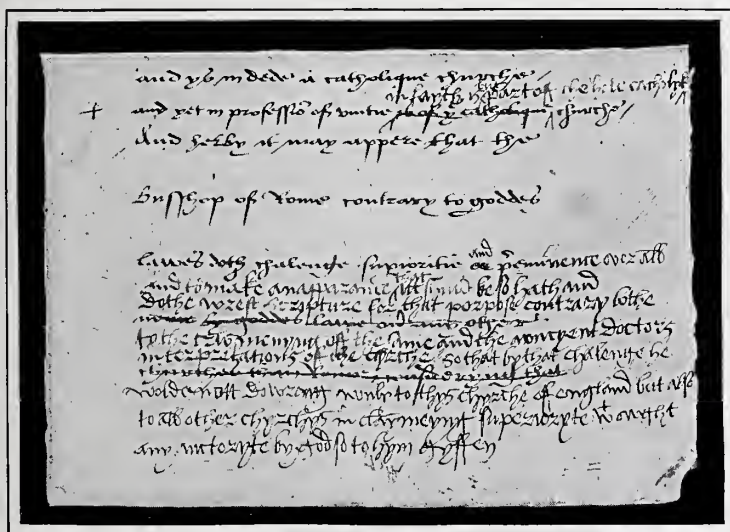 and ys in dede a catholique churche
in fayth the partor the hole catholyk
and yet in professiō of unitie churche
And herby it may appere that the
Busshop of Rome contrary to goddes
lawes doth chalenge supioritie and p̄eminence over all
and to make an apparance that itt shuld be so hath and
dothe wrest scripture for that porpose contrary bothe
to the trw menyng of the same and the auncyent doctors
interpretations of the chyrche so that by that chalenge he
wolde nott do wrong wonly to thys chyrche of england but also
to all other chyrchys in claymeyng superioryte withowght
any auctoryte by god so to hym gyffen